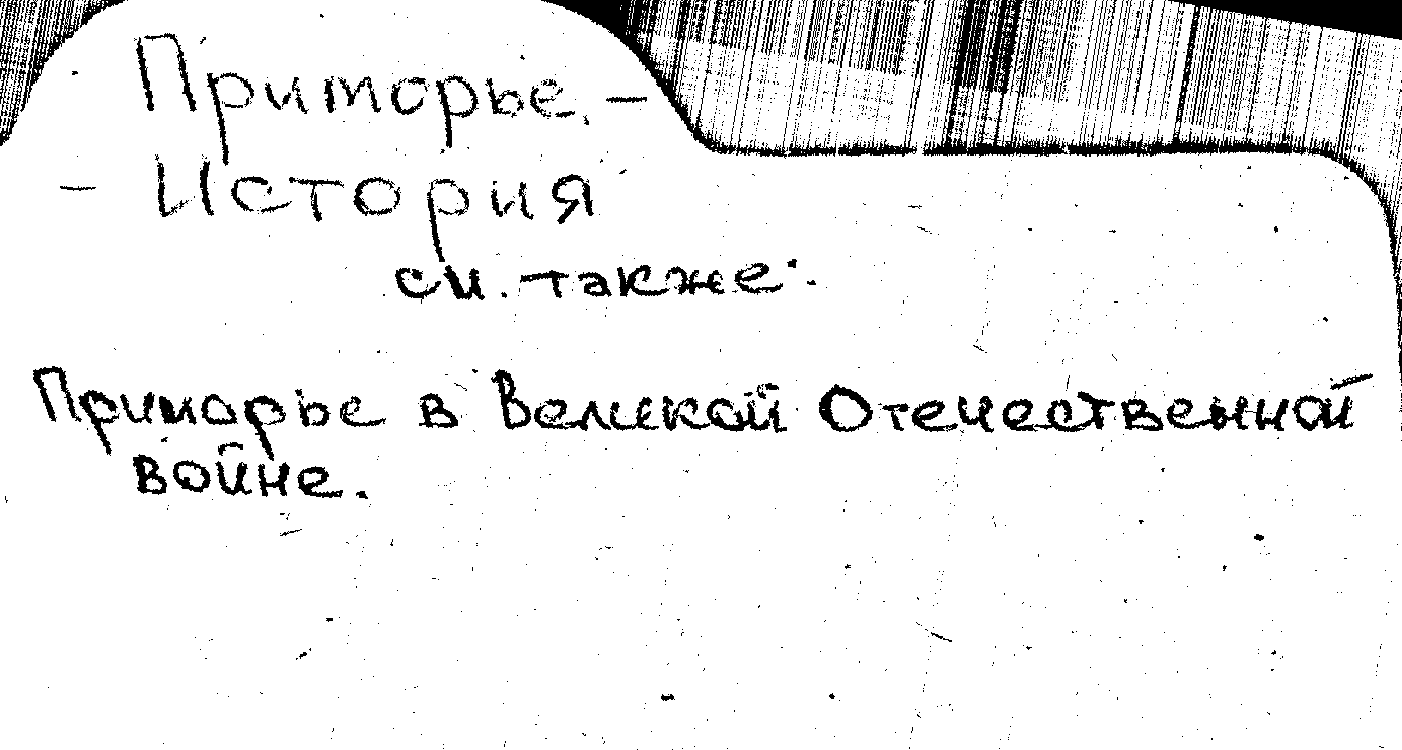 Приморье –
– История
см. также:
Приморье в Великой Отечественной
войне.